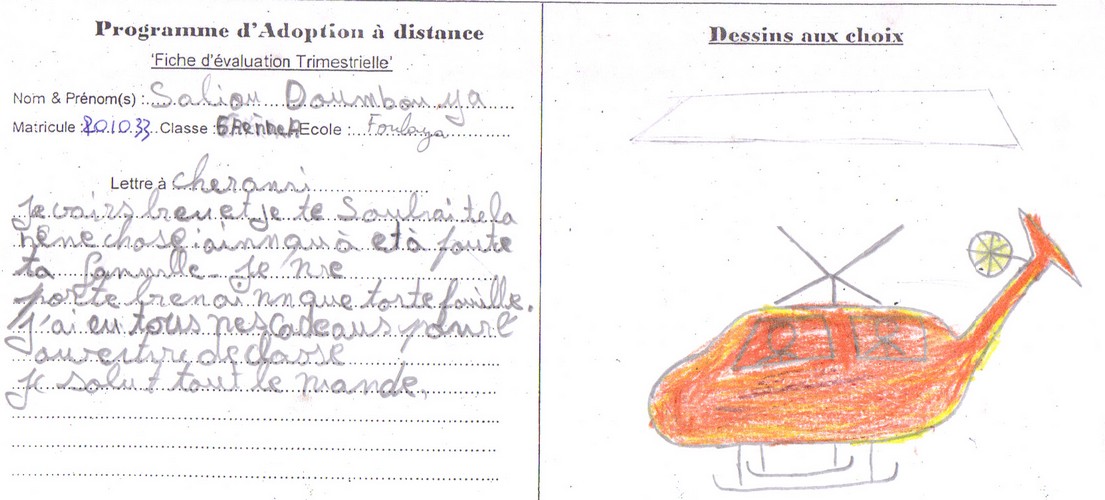 Programme d'Adoption à distance
'Fiche d'évaluation Trimestrielle'
Nom & Prénom(s) : Saliou Doumbouya
Matricule : 201033 Classe : Ecole : Foulaya
Lettre à cher ami
je vais bien et je te Souhaite la
même chose ainnqu à età foute
ta famille je me
porte bien ainnque toute famille.
J'ai eu tous mes cadeaus pour l
ouvertire de classe
je salut tout le monde.
Dessins aux choix